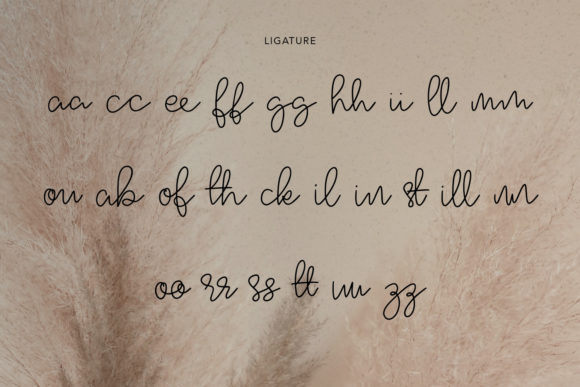 LIGATURE
aa cc ee ff gg hh ii ll mm
ou ab of th ck il in st ill nn
oo rr ss tt uu zz